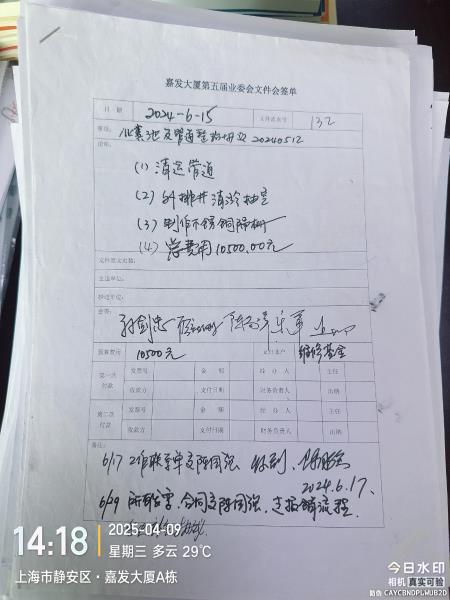 嘉发大厦第五届业委会文件会签单
日期 2024-6-15 文件流水号 132
事项: 化粪池及管道 20240512
说明:
(1) 清运管道
(2) 64排井清淤抽空
(3) 制作不锈钢隔栅
(4) 总费用10500.00元
文件原文史稿:
主送单位:
抄送单位:
会签: 孙剑忠
预算费用 10500元 支付账户 维修基金
第一次付款 发票号 金额 经办人 主任
收款方 支付日期 财务负责人 出纳
第二次付款 发票号 金额 经办人 主任
收款方 支付日期 财务负责人 出纳
备注:
6/17 工作联系单交陈国强 收到
2024.6.17.
6/29 合同交陈国强, 走报销流程.
14:18 2025-04-09
星期三 多云 29℃
上海市静安区·嘉发大厦A栋
今日水印
相机 真实可验
防伪 CAYCBNDPLWUB2D